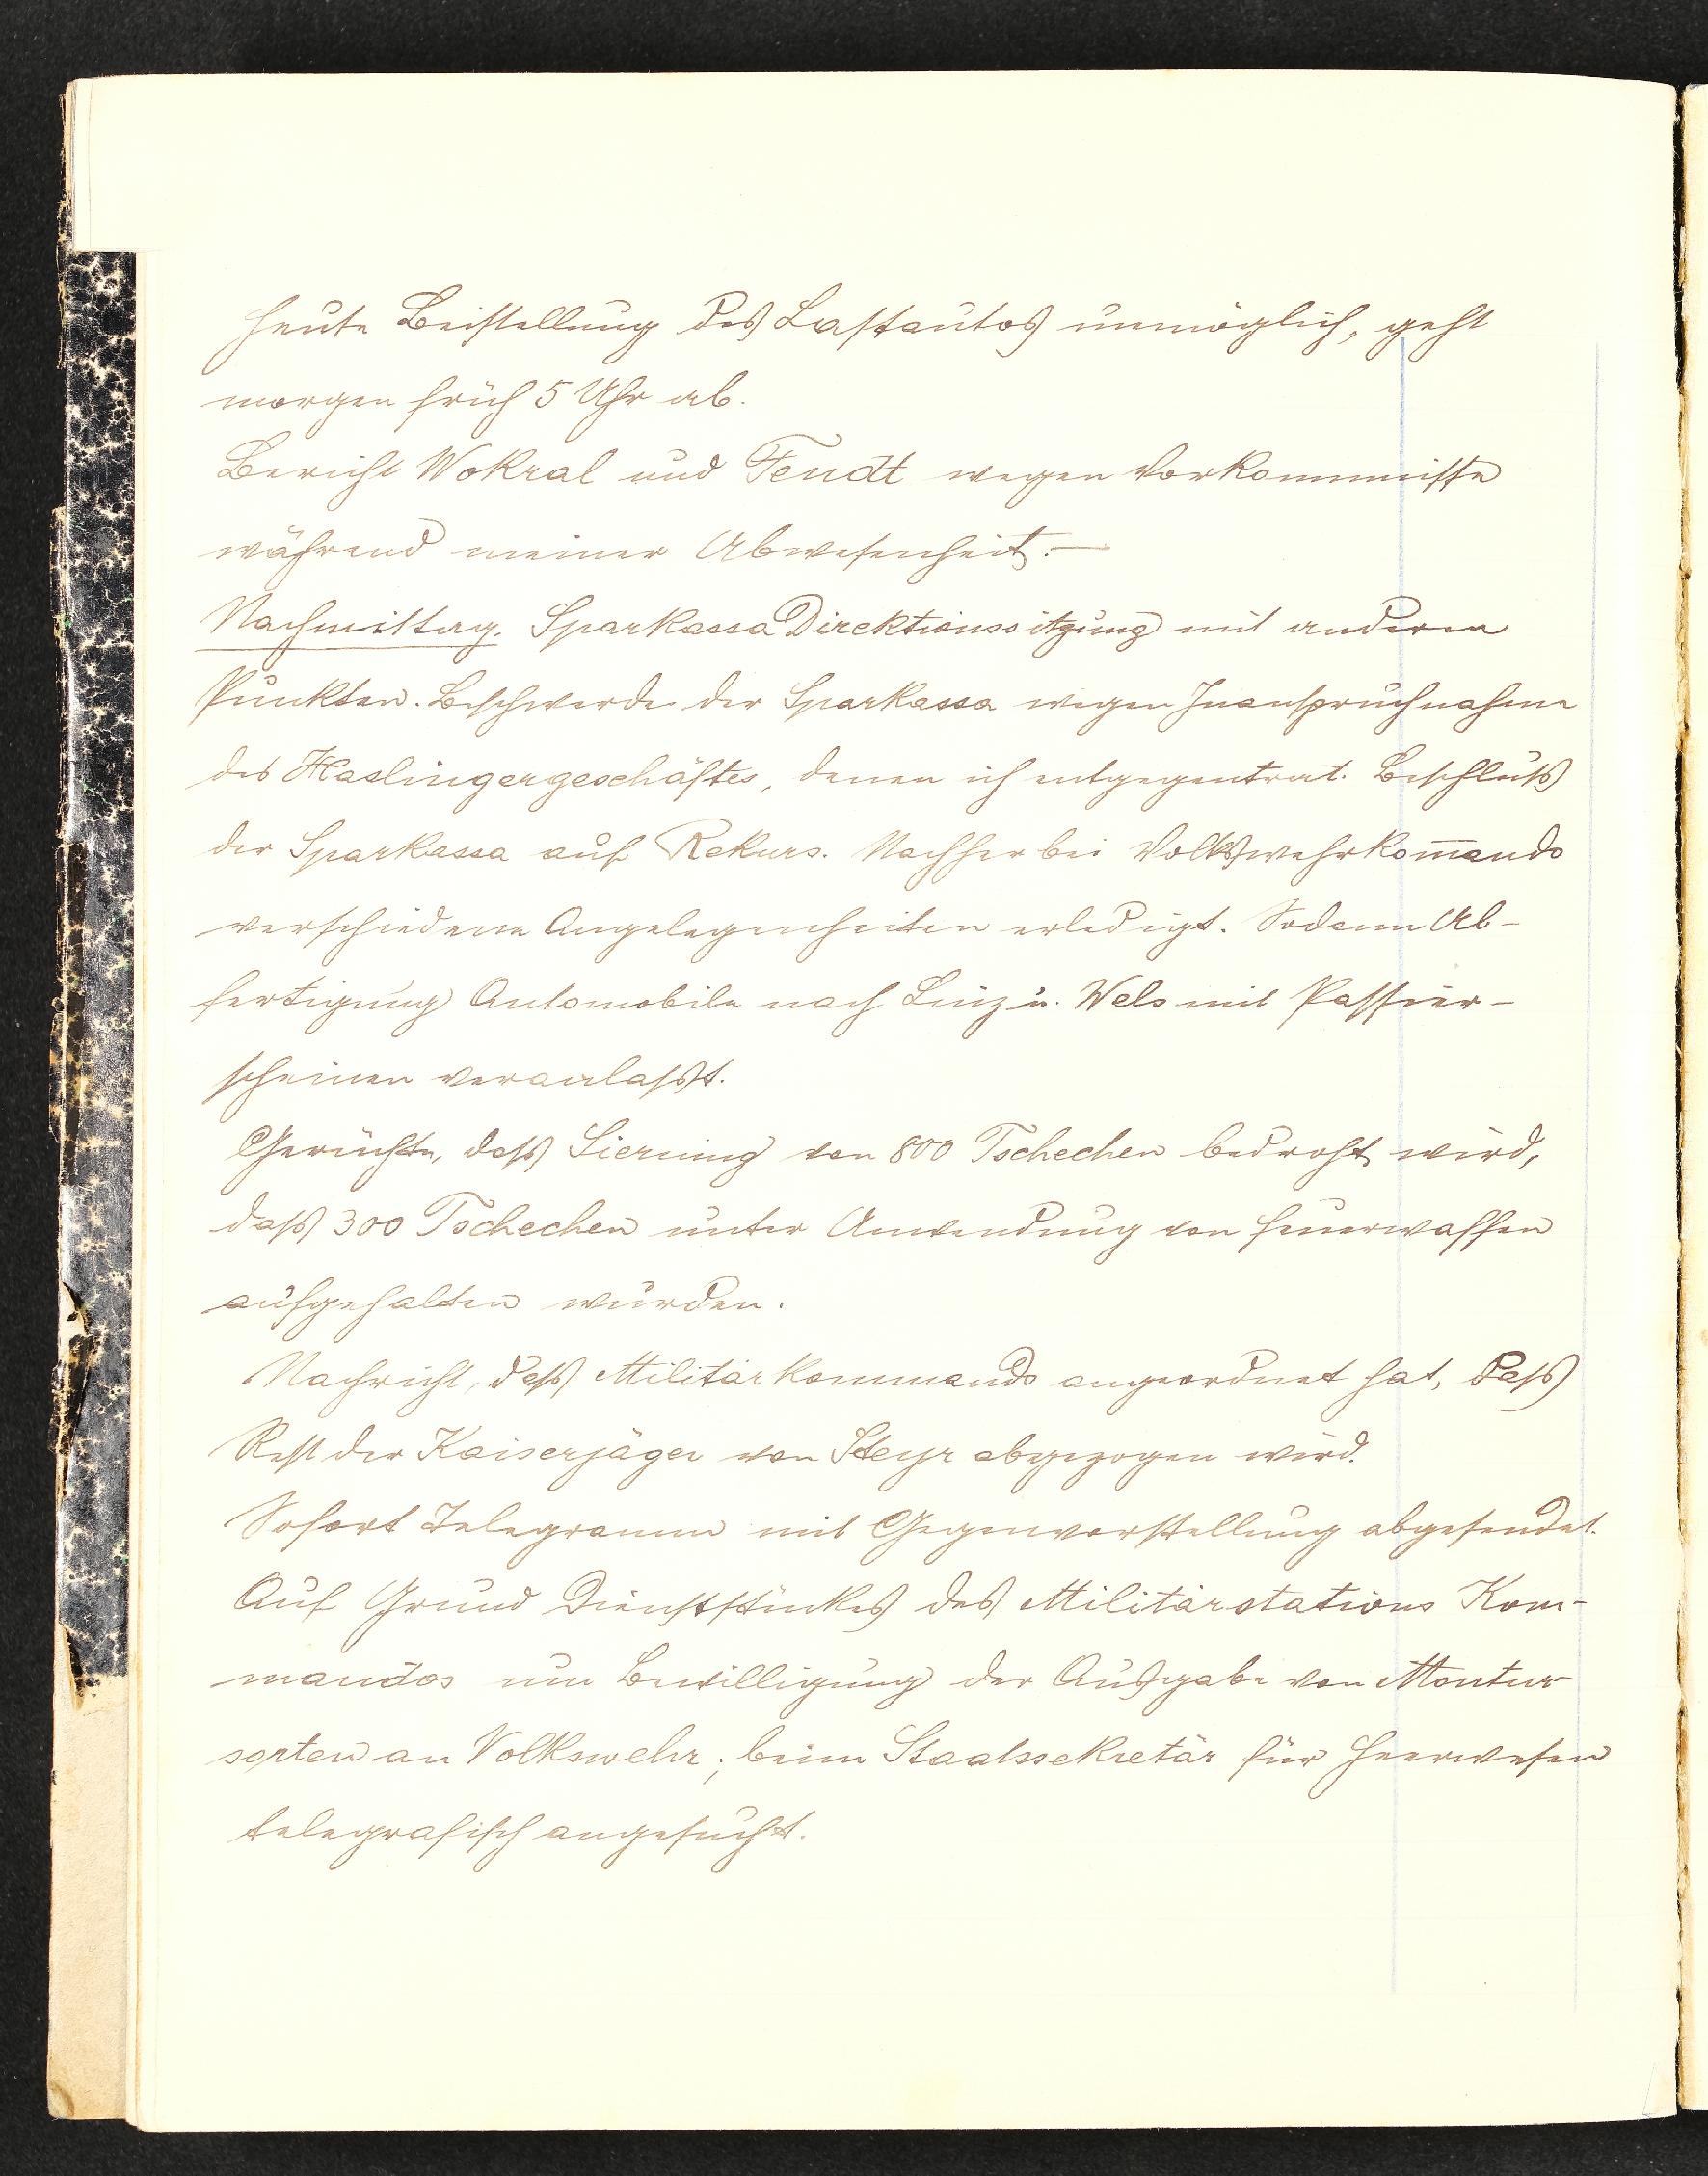 heute Beistellung des Lastautos unmöglich, geht
morgen früh 5 Uhr ab.
Bericht Wokral und Tendt wegen Vorkommnisse
während meiner Abwesenheit. —
Nachmittag. Sparkassa Direktionssitzung mit anderen
Punkten. Beschwerde der Sparkassa wegen Inanspruchnahme
des Haslingergeschäftes, denen ich entgegentrat. Beschluß
der Sparkassa auf Rekurs. Nachher bei Volkswehrkom̅ando
verschiedene Angelegenheiten erledigt. Sodann Ab-
fertigung Automobile nach Linz u. Wels mit Passier-
scheinen veranlaßt.
Gerüchte, daß Sierning von 800 Tschechen bedroht wird,
daß 300 Tschechen unter Anwendung von Feuerwaffen
aufgehalten wurden.
Nachricht, daß Militärkommando angeordnet hat, daß
Rest der Kaiserjäger von Steyr abgezogen wird.
Sofort Telegramm mit Gegenvorstellung abgesendet.
Auf Grund Dienststückes des Militärstations Kom-
mandos um Bewilligung der Ausgabe von Montur-
sorten an Volkswehr; beim Staatssekretär für Heerwesen
telegrafisch angesucht.